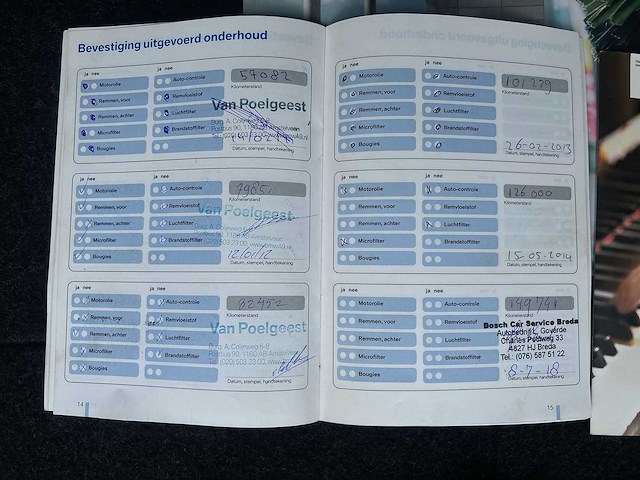 Bevestiging uitgevoerd onderhoud
ja nee
ja nee
57082
Motorolie
Auto-controle
Kilometerstand
Remmen, voor
Remvloeistof
Van Poelgeest
Remmen, achter
Luchtfilter
Burg. A. Colijnweg 6-8
Microfilter
Brandstoffilter
Bougies
Datum, stempel, handtekening
ja nee
ja nee
Motorolie
Auto-controle
Kilometerstand
Remmen, voor
Remvloeistof
Van Poelgeest
Remmen, achter
Luchtfilter
Microfilter
Brandstoffilter
Bougies
Datum, stempel, handtekening
ja nee
ja nee
Motorolie
Auto-controle
Kilometerstand
Remmen, voor
Remvloeistof
Van Poelgeest
Remmen, achter
Luchtfilter
Burg. A. Colijnweg 6-8
Postbus 90, 1180 AB Amstelveen
Microfilter
Brandstoffilter
Bougies
Datum, stempel, handtekening
14
ja nee
ja nee
101279
Motorolie
Auto-controle
Kilometerstand
Remmen, voor
Remvloeistof
Remmen, achter
Luchtfilter
Microfilter
Brandstoffilter
Bougies
26-02-2013
Datum, stempel, handtekening
ja nee
ja nee
126.000
Motorolie
Auto-controle
Kilometerstand
Remmen, voor
Remvloeistof
Remmen, achter
Luchtfilter
Microfilter
Brandstoffilter
Bougies
15-05-2014
Datum, stempel, handtekening
ja nee
ja nee
149741
Motorolie
Auto-controle
Kilometerstand
Remmen, voor
Remvloeistof
Bosch Car Service Breda
Autobedrijf L. Goverde
Remmen, achter
Luchtfilter
Charles Petitweg 33
4827 HJ Breda
Microfilter
Brandstoffilter
Tel.: (076) 587 51 22
Bougies
8-7-18
Datum, stempel, handtekening
15